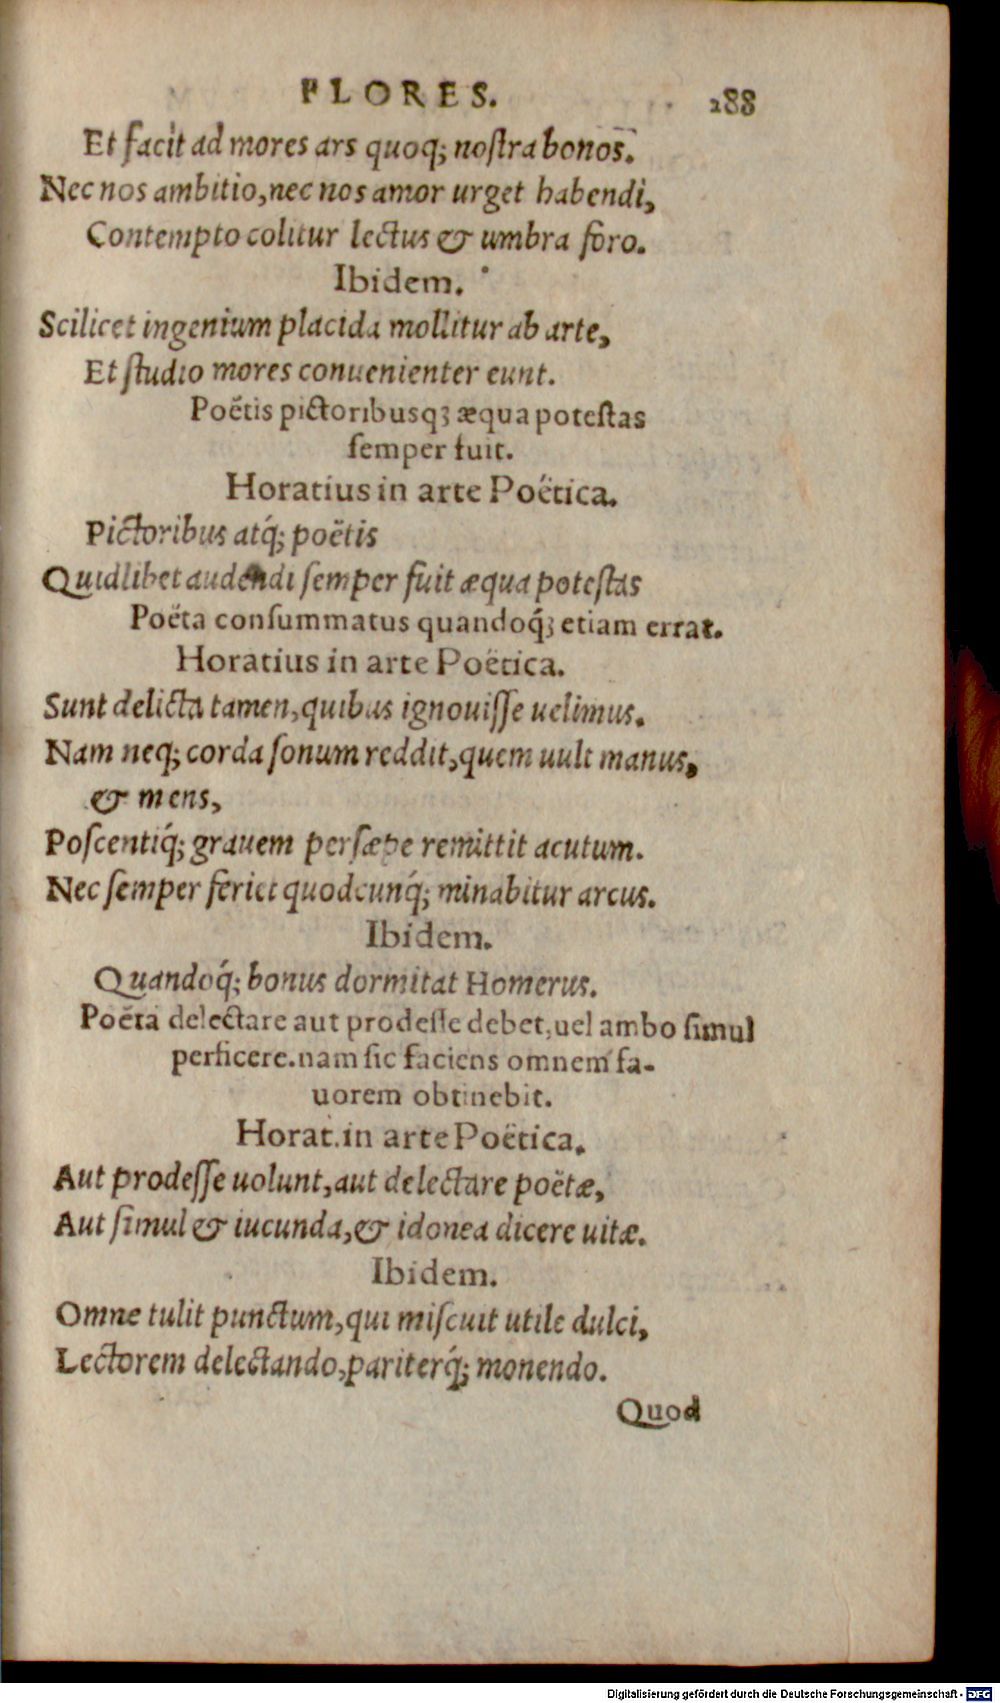 FLORES. 288
Et facit ad mores ars quoq; noſtra bonos.
Nec nos ambitio, nec nos amor urget habendi,
Contempto colitur lectus & umbra foro.
Ibidem.
Scilicet ingenium placida mollitur ab arte,
Et ſtudio mores conuenienter eunt.
Poëtis pictoribusq; æqua poteſtas
ſemper fuit.
Horatius in arte Poëtica.
Pictoribus atq́; poëtis
Quidlibet audendi ſemper fuit æqua poteſtas
Poëta conſummatus quandoq́; etiam errat.
Horatius in arte Poëtica.
Sunt delicta tamen, quibus ignouiſſe uelimus.
Nam neq; corda ſonum reddit, quem uult manus,
& mens,
Poſcentiq́; grauem perſæpe remittit acutum.
Nec ſemper feriet quodcunq́; minabitur arcus.
Ibidem.
Quandoq́; bonus dormitat Homerus.
Poëta delectare aut prodeſſe debet, uel ambo ſimul
perficere. nam ſic faciens omnem fa-
uorem obtinebit.
Horat. in arte Poëtica.
Aut prodeſſe uolunt, aut delectare poëtæ,
Aut ſimul & iucunda, & idonea dicere uitæ.
Ibidem.
Omne tulit punctum, qui miſcuit utile dulci,
Lectorem delectando, pariterq́; monendo.
Quod
Digitalisierung gefördert durch die Deutsche Forschungsgemeinschaft - DFG